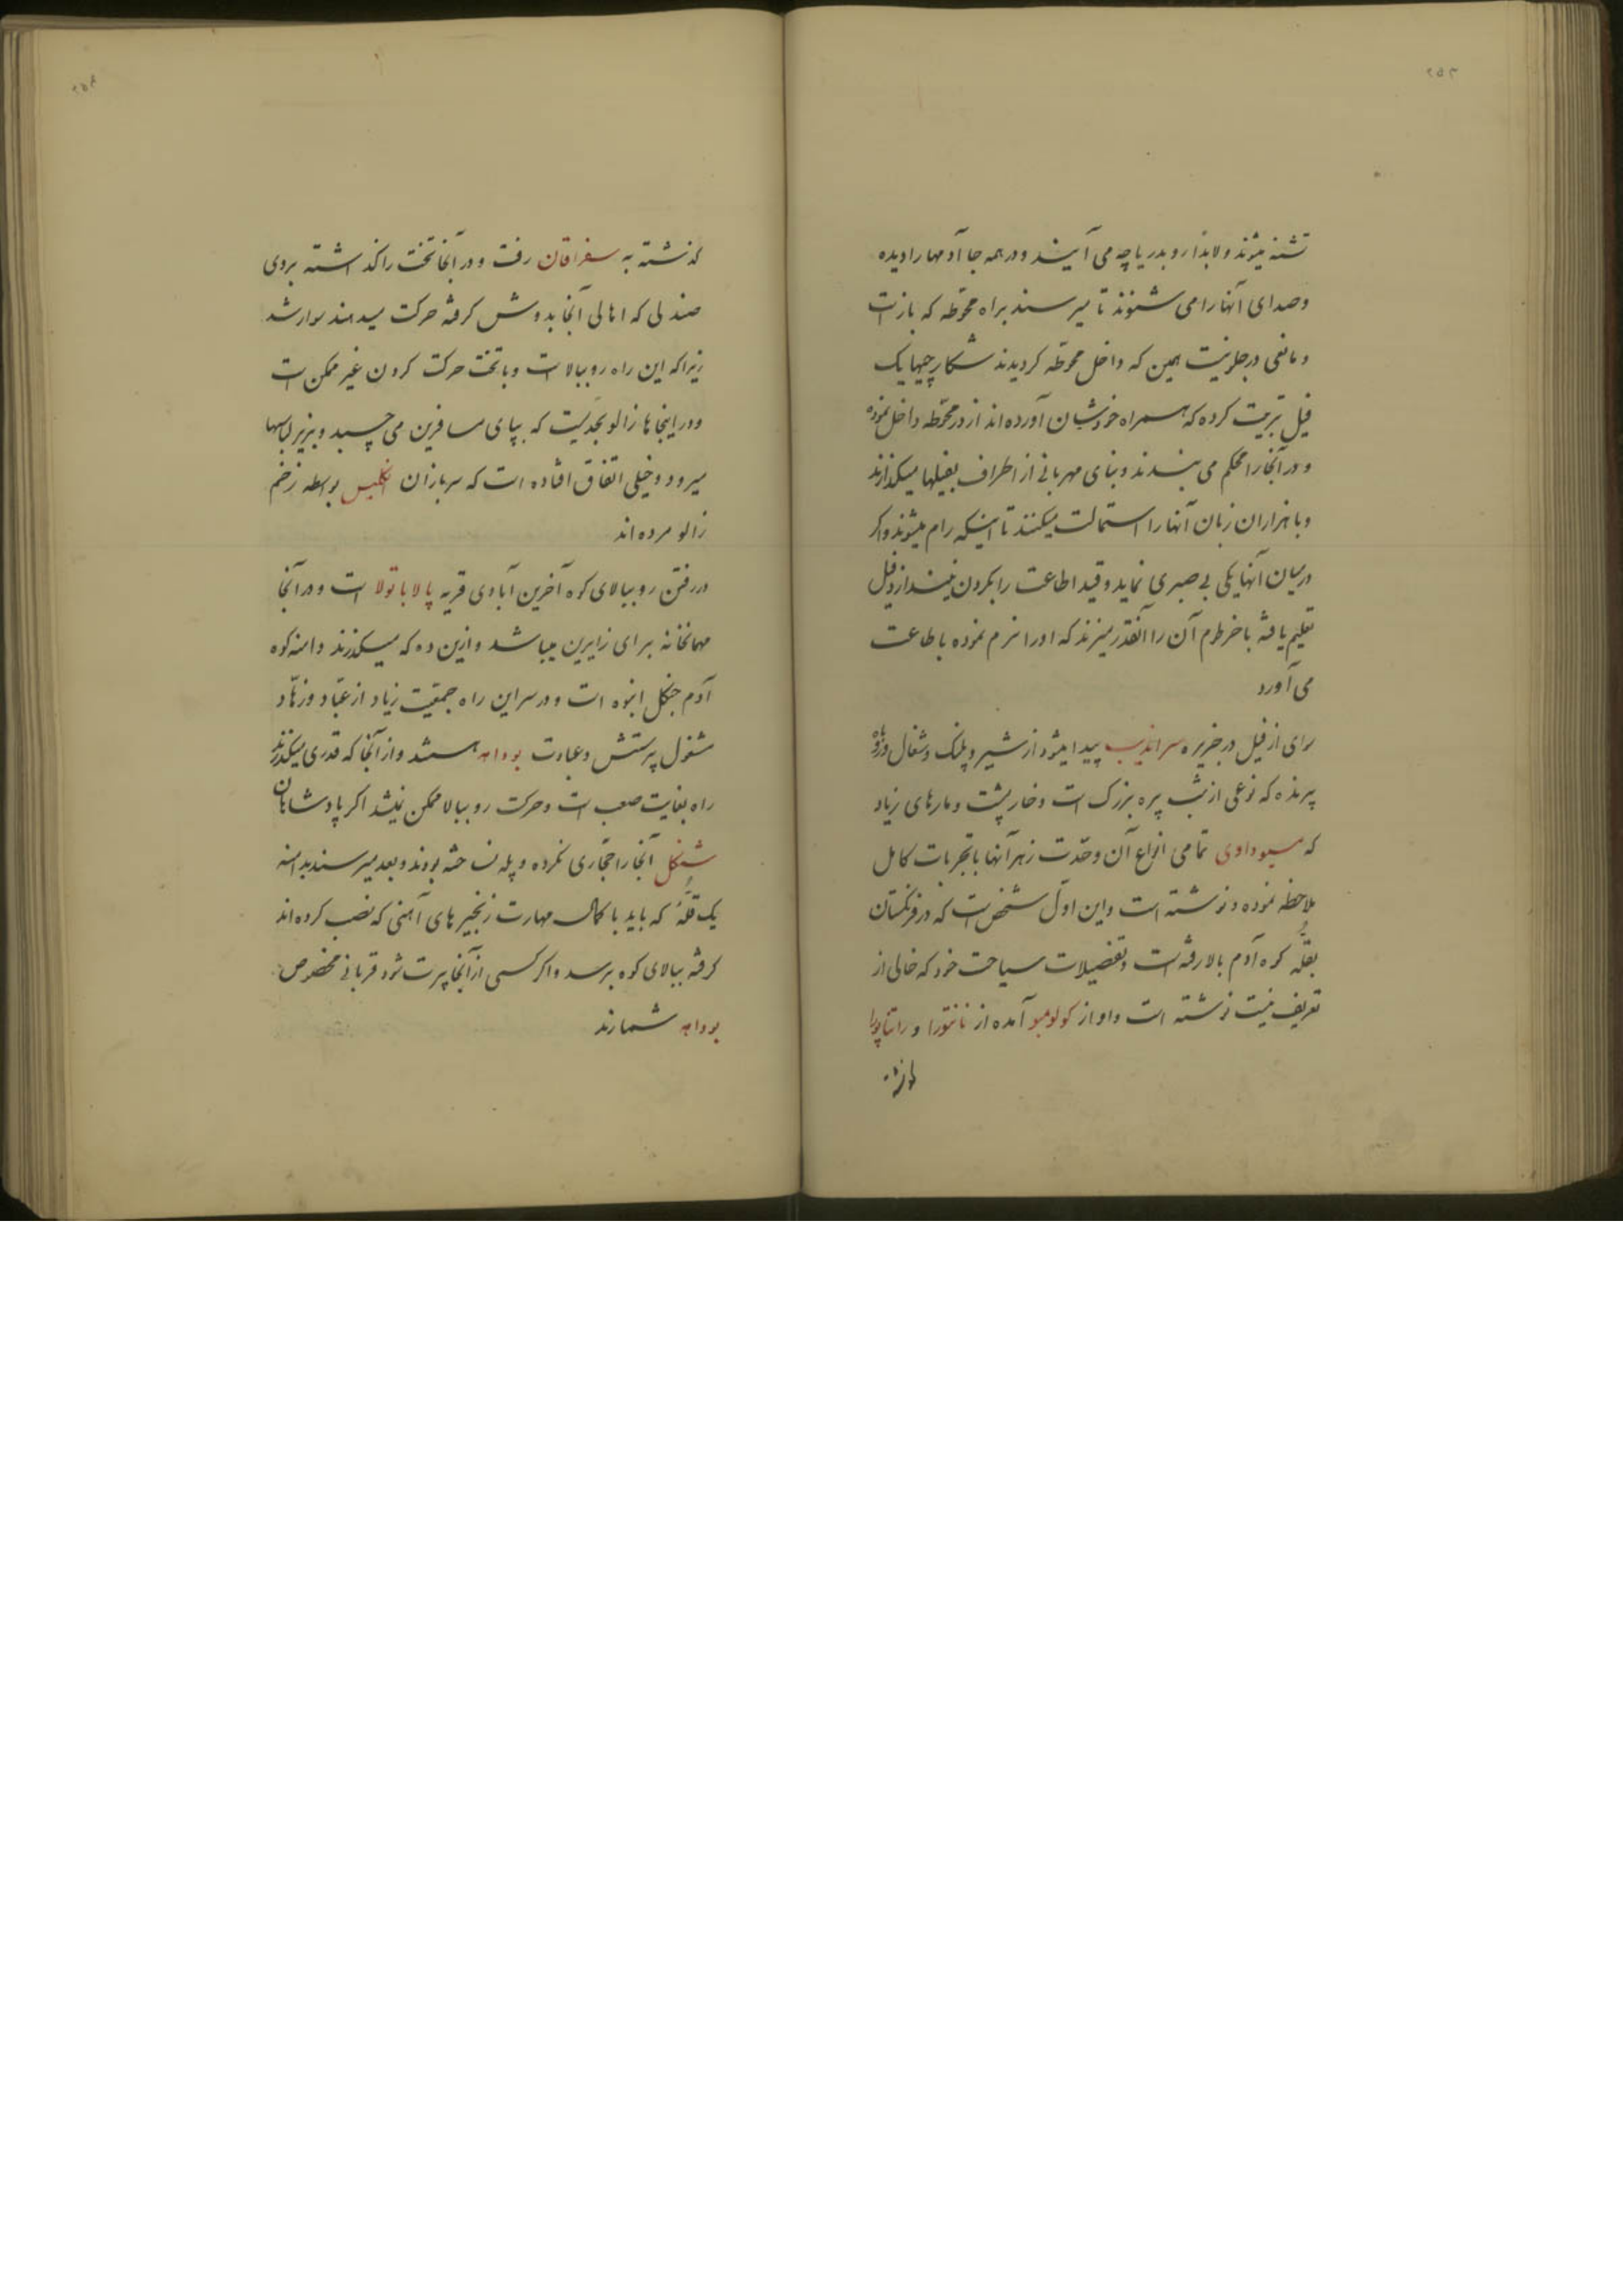 ۲۵۳
تشنه میشوند و لابداً رو بدریاچه می آیند و در همه جا آدمها را دیده
و صدای آنها را می شنوند تا میرسند براه محوّطه که باز است
و مانعی در جلو نیست همین که داخل محوّطه کردیدند شکارچیها یک
فیل تربیت کرده که همراه خودشان آورده اند از در محوّطه داخل نموده
و در آنجا را محکم می بندند و بنای مهربانی از اطراف بفیلها میکذارند
و با هزاران زبان آنها را استمالت میکنند تا اینکه رام میشوند و اکر
در میان آنها یکی بی صبری نماید و قید اطاعت را بکردن نیندازد فیل
تعلیم یافته با خرطوم آن را آنقدر میزند که او را نرم نموده باطاعت
می آورد
سوای از فیل در جزیره سراندیب پیدا میشود از شیر و پلنک و شغال و
پرنده که نوعی از شب پره بزرک است و خارپشت و مارهای زیاد
که مسیو داوی تمامی انواع آن و حدّت زهر آنها با تجربات کامل
ملاحظه نموده و نوشته است و این اوّل شخص است که در فرنکستان
بقلّه کوه آدم بالا رفته است و تفصیلات سیاحت خود که خالی از
تعریف نیست نوشته است و او از کولومبو آمده از نانتورا و راتناپورا
کذشته
۲۵۴
کذشته به سفراقان رفت و در آنجا تخت را کذاشته بروی
صندلی که اهالی آنجا بدوش کرفته حرکت میدهند سوار شد
زیرا که این راه رو ببالا است و با تخت حرکت کردن غیر ممکن است
و در اینجاها زالو بحدّیست که بپای مسافرین می چسبد و بزیر لباسها
میرود و خیلی اتفاق افتاده است که سربازان انکلیس بواسطه زخم
زالو مرده اند
در رفتن رو ببالای کوه آخرین آبادی قریه پالاباتولا است و در آنجا
مهمانخانه برای زایرین میباشد و ازین ده که میکذرند دامنه کوه
آدم جنکل انبوه است و در سر این راه جمعیّت زیاد از عبّاد و زهّاد
مشغول پرستش و عبادت بوداهه هستند و از آنجا که قدری میکذرند
راه بغایت صعب است و حرکت رو ببالا ممکن نمیشد اکر پادشاهان
شنکل آنجا را حجّاری نکرده و پله نساخته بودند و بعد میرسند بدامنه
یک قلّهٔ که باید با کمال مهارت زنجیرهای آهنی که نصب کرده اند
کرفته ببالای کوه برسد و اکر کسی از آنجا پرت شود قربانی مخصوص
بوداهه شمارند